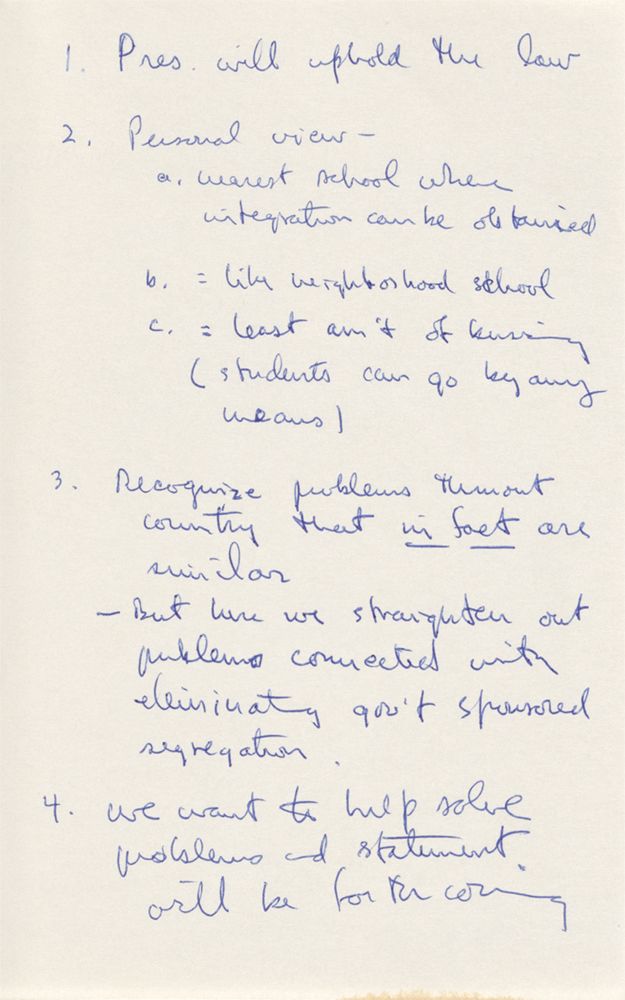 1. Pres. will uphold the law
2. Personal view -
a. nearest school where
integration can be obtained
b. = like neighborhood school
c. = least am't of busing
( students can go by any
means )
3. Recognize problems thruout
country that in fact are
similar
- But here we straighten out
problems connected with
eliminatg gov't sponsored
segregation.
4. we want to help solve
problems and statement
will be forthcoming